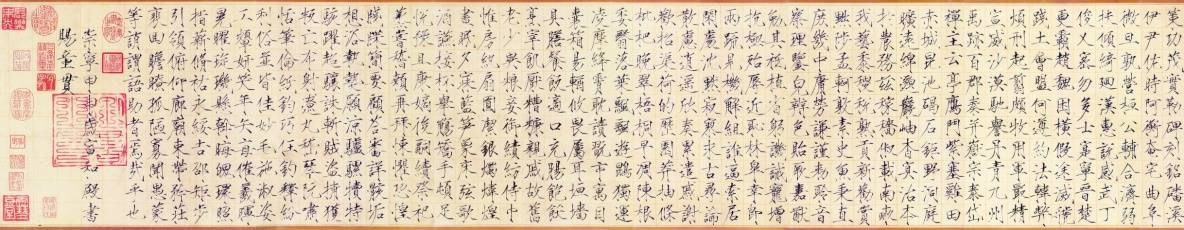 策功茂實勒碑刻銘磻溪
伊尹佐時阿衡奄宅曲阜
微旦孰營桓公輔合濟弱
扶傾綺迴漢惠說感武丁
俊乂密勿多士寔寧晉楚
更霸趙魏困橫假途滅虢
踐土會盟何遵約法韓弊
煩刑起翦頗牧用軍最精
宣威沙漠馳譽丹青九州
禹跡百郡秦并嶽宗泰岱
禪主云亭鴈門紫塞雞田
赤城昆池碣石鉅野洞庭
曠遠綿邈巖岫杳冥治本
於農務茲稼穡俶載南畝
我藝黍稷稅熟貢新勸賞
黜陟孟軻敦素史魚秉直
庶幾中庸勞謙謹敕聆音
察理鑒貌辨色貽厥嘉猷
勉其祗植省躬譏誡寵增
抗極殆辱近恥林皋幸即
兩疏見機解組誰逼索居
閑處沉默寂寥求古尋論
散慮逍遙欣奏累遣慼謝
歡招渠荷的歷園莽抽條
枇杷晚翠梧桐早凋陳根
委翳落葉飄颻遊鵾獨運
凌摩絳霄耽讀翫市寓目
囊箱易輶攸畏屬耳垣墻
具膳飡飯適口充腸飽飫
烹宰飢厭糟糠親戚故舊
老少異糧妾御績紡侍巾
帷房紈扇圓潔銀燭煒煌
晝眠夕寐藍筍象床絃歌
酒讌接杯舉觴矯手頓足
悅豫且康嫡後嗣續祭祀
蒸嘗稽顙再拜悚懼恐惶
牋牒簡要顧答審詳骸垢
想浴執熱願涼驢騾犢特
駭躍超驤誅斬賊盜捕獲
叛亡布射遼丸嵇琴阮嘯
恬筆倫紙鈞巧任釣釋紛
利俗並皆佳妙毛施淑姿
工顰妍笑年矢每催羲暉
朗曜璇璣懸斡晦魄環照
指薪修祜永綏吉劭矩步
引領俯仰廊廟束帶矜莊
徘徊瞻眺孤陋寡聞愚蒙
等誚謂語助者焉哉乎也
崇寧甲申歲宣和殿書
賜童貫